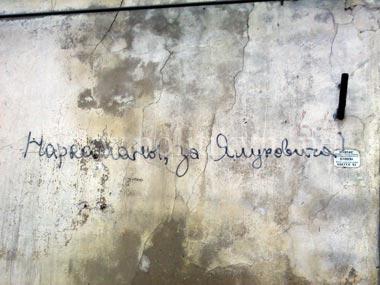 Наркоманы, за Януковича!